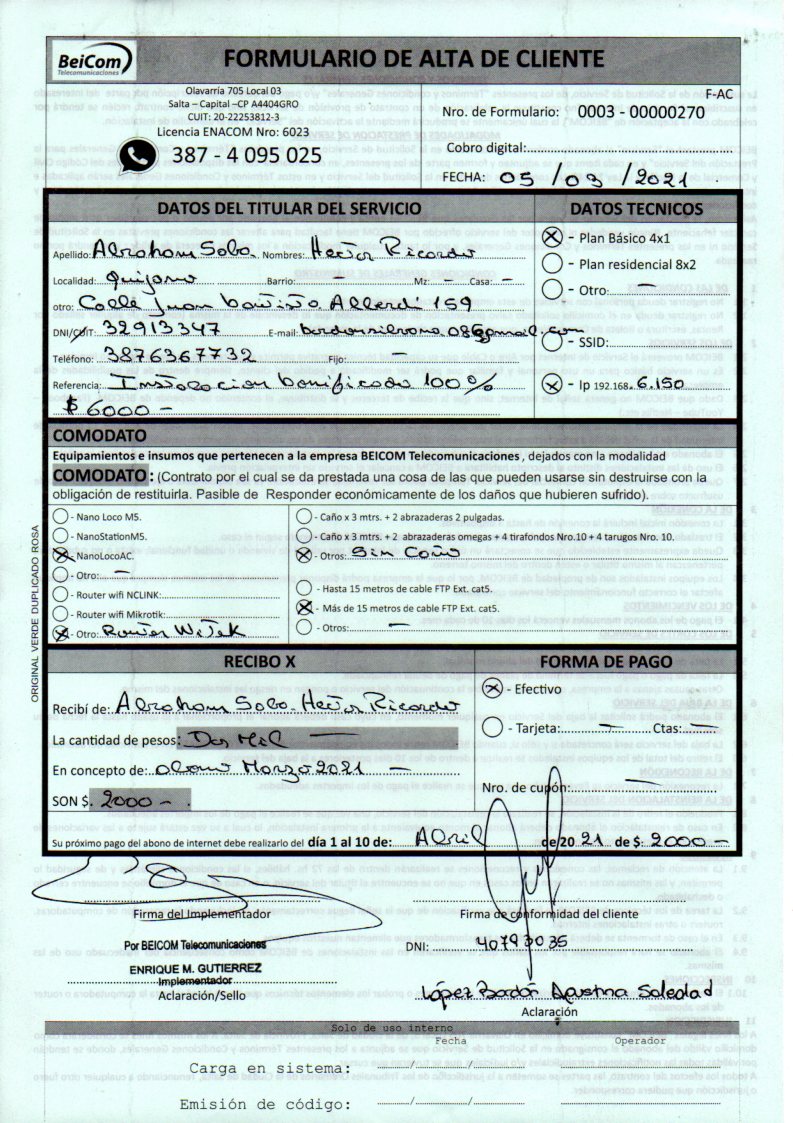 BeiCom
Telecomunicaciones
FORMULARIO DE ALTA DE CLIENTE
Olavarría 705 Local 03
Salta – Capital –CP A4404GRO
CUIT: 20-22253812-3
Licencia ENACOM Nro: 6023
387 - 4 095 025
F-AC
Nro. de Formulario: 0003 - 00000270
Cobro digital:
FECHA: 05 / 03 / 2021
DATOS DEL TITULAR DEL SERVICIO
Apellido: Abraham Soba. Nombres: Hector Ricardo
Localidad: Quijano Barrio: — Mz: — Casa: —
otro: Calle Juan Bautista Alberdi 159
DNI/CUIT: 32913347 E-mail: @gmail.com
Teléfono: 3876367732 Fijo: —
Referencia: Instalacion bonificada 100%
$ 6000 -
DATOS TECNICOS
X - Plan Básico 4x1
- Plan residencial 8x2
- Otro: —
- SSID:
X - Ip 192.168. 6.150
COMODATO
Equipamientos e insumos que pertenecen a la empresa BEICOM Telecomunicaciones, dejados con la modalidad
COMODATO: (Contrato por el cual se da prestada una cosa de las que pueden usarse sin destruirse con la
obligación de restituirla. Pasible de Responder económicamente de los daños que hubieren sufrido).
- Nano Loco M5.
- NanoStationM5.
X - NanoLocoAC.
- Otro: —
- Router wifi NCLINK:
- Router wifi Mikrotik:
X - Otro: Router WiTek
- Caño x 3 mtrs. + 2 abrazaderas 2 pulgadas.
- Caño x 3 mtrs. + 2 abrazaderas omegas + 4 tirafondos Nro.10 + 4 tarugos Nro. 10.
X - Otros: Sin Caño
- Hasta 15 metros de cable FTP Ext. cat5.
X - Más de 15 metros de cable FTP Ext. cat5.
- Otros: —
ORIGINAL VERDE DUPLICADO ROSA
RECIBO X
Recibí de: Abraham Soba. Hector Ricardo
La cantidad de pesos: Dos Mil —
En concepto de: abono Marzo 2021 —
SON $. 2000 - .
FORMA DE PAGO
X - Efectivo
- Tarjeta: — Ctas: —
Nro. de cupón: —
Su próximo pago del abono de internet debe realizarlo del día 1 al 10 de: Abril de 20 21 de $: 2000 -
Firma del Implementador
Por BEICOM Telecomunicaciones
ENRIQUE M. GUTIERREZ
Implementador
Aclaración/Sello
Firma de conformidad del cliente
DNI: 40793035
López Bardor Agustina Soledad
Aclaración
Solo de uso interno
Fecha Operador
Carga en sistema: / /
Emisión de código: / /